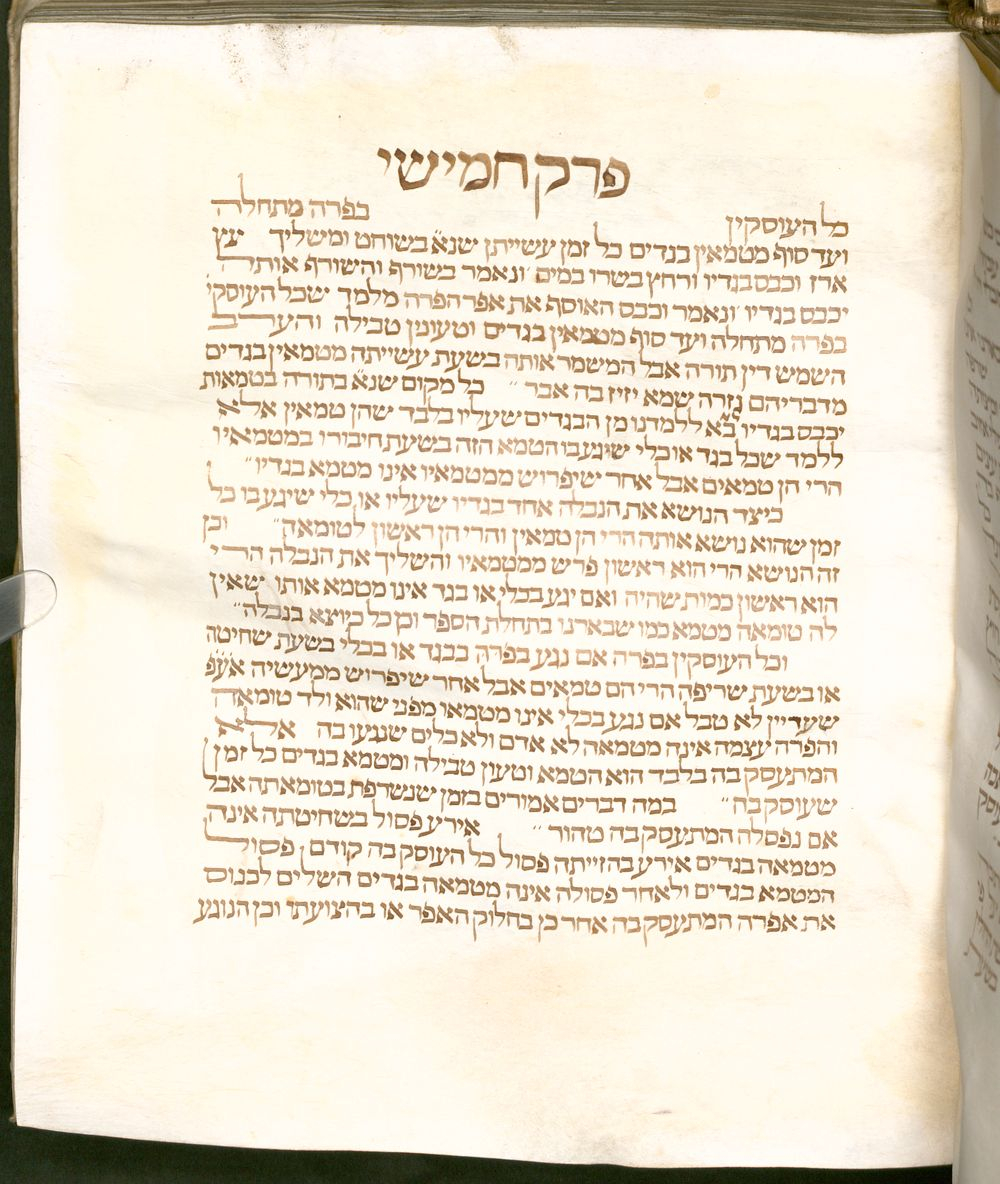 פרק חמישי
כל העוסקין בפרה מתחלה
ועד סוף מטמאין בגדים כל זמן עשייתן שנא בשוחט ומשליך עץ
ארז וכבס בגדיו ורחץ בשרו במים ונאמר בשורף והשורף אותה
יכבס בגדיו ונאמר וכבס האוסף את אפר הפרה מלמד שכל העוסקי
בפרה מתחלה ועד סוף מטמאין בגדים וטעונין טבילה והערב
השמש דין תורה אבל המשמר אותה בשעת עשייתה מטמאין בגדים
מדבריהם גזרה שמא יזיז בה אבר ״ כל מקום שנא בתורה בטמאות
יכבס בגדיו בא ללמדנו מן הבגדים שעליו בלבד שהן טמאין אלא
ללמד שכל בגד או כלי שיגע בו הטמא הזה בשעת חיבורו במטמאיו
הרי הן טמאים אבל אחר שיפרוש ממטמאיו אינו מטמא בגדיו ״
כיצד הנושא את הנבלה אחד בגדיו שעליו או כלי שיגע בו כל
זמן שהוא נושא אותה הרי הן טמאין והרי הן ראשון לטומאה ״ וכן
זה הנושא הרי הוא ראשון פרש ממטמאיו והשליך את הנבלה הרי
הוא ראשון כמות שהיה ואם יגע בכלי או בגד אינו מטמא אותו שאין
לה טומאה מטמא כמו שבארנו בתחלת הספר וכן כל כיוצא בנבלה ״
וכל העוסקין בפרה אם נגע בפרה בבגד או בכלי בשעת שחיטה
או בשעת שריפה הרי הם טמאים אבל אחר שיפרוש ממעשיה אעפ
שעדיין לא טבל אם נגע בכלי אינו מטמאו מפני שהוא ולד טומאה
והפרה עצמה אינה מטמאה לא אדם ולא כלים שנגעו בה אלא
המתעסק בה בלבד הוא הטמא וטעון טבילה ומטמא בגדים כל זמן
שעוסק בה ״ במה דברים אמורים בזמן שנשרפת בטומאתה אבל
אם נפסלה המתעסק בה טהור ״ אירע פסול בשחיטתה אינה
מטמאה בגדים אירע בהזייתה פסול כל העוסק בה קודם פסול
המטמא בגדים ולאחר פסולה אינה מטמאה בגדים השלים לכנוס
את אפרה המתעסק בה אחר כן בחלוק האפר או בהצועתו וכן הנוגע